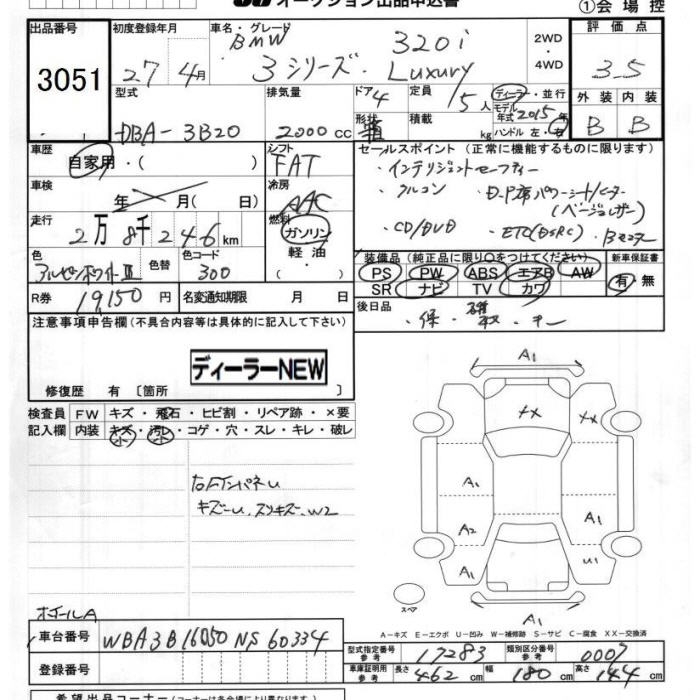 オークション出品申込書
①会場控
出品番号 3051
初度登録年月 27 4月
車名・グレード BMW 320i
3シリーズ・Luxury
2WD
・4WD
評価点 3.5
型式 DBA-3B20
排気量 2000cc
ドア 4
形状 箱
定員 5人
積載 kg
ディーラー・並行
モデル年式 2015年
ハンドル 左・右
外装 B
内装 B
車歴 自家用・( )
シフト FAT
セールスポイント (正常に機能するものに限ります)
・インテリジェントセーフティー
・クルコン
(ベージュレザー)
・CD/DVD ・ETC(DSRC)
車検 年 月( 日)
冷房 AAC
走行 2万8千246km
燃料 ガソリン
軽油
色 アルピンホワイトIII
色替
色コード 300
装備品 (純正品に限り○をつけてください)
PS PW ABS エアB AW
SR ナビ TV カワ
新車保証書
有・無
R券 19,150円
名変通知期限 月 日
後日品 ・保・
注意事項申告欄(不具合内容等は具体的に記入して下さい)
ディーラーNEW
修復歴 有 [箇所
検査員記入欄
FW キズ・飛石・ヒビ割・リペア跡・×要
内装 キズ・汚レ・コゲ・穴・スレ・キレ・破レ
右FインパネU
キズーU.スリキズ.W2
ホイールA
A1
XX
XX
A1
A2
A1
A1
U1
A1
スペア
A−キズ E−エクボ U−凹み W−補修跡 S−サビ C−腐食 XX−交換済
車台番号 WBA3B16050NS60334
登録番号
型式指定番号参考 17283
類別区分番号参考 0007
車庫証明用参考 長さ 462cm 幅 180cm 高さ 144cm
希望出品コーナー